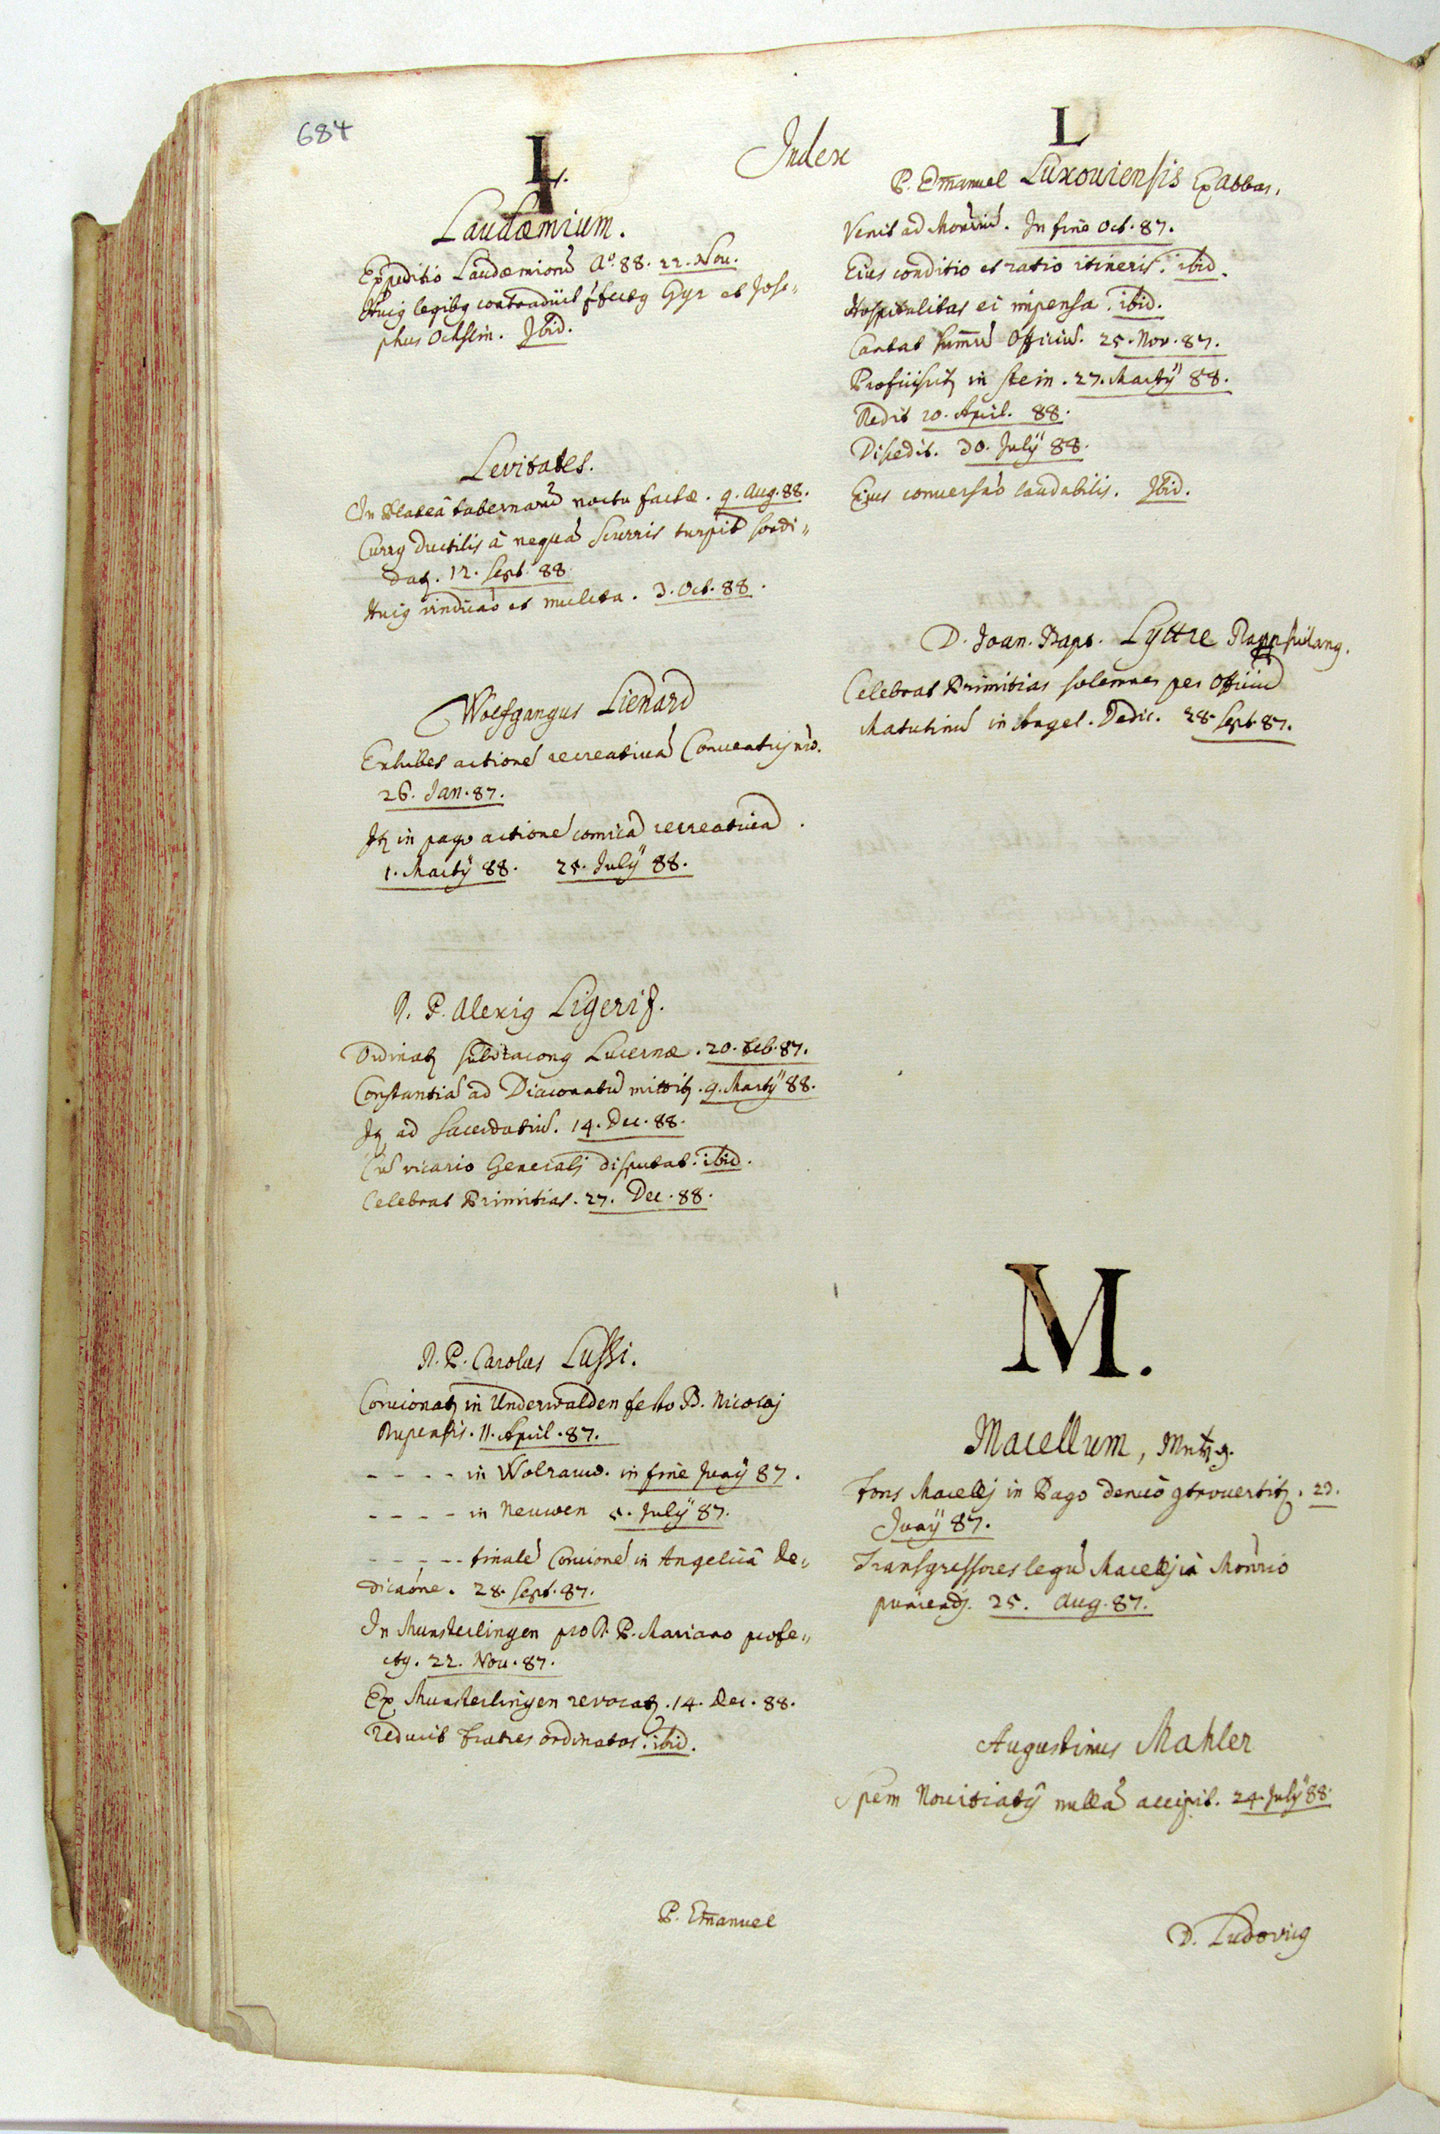 684
Index
L.
Laudæmium.
Expeditio Laudæmionũ Aº 88. 22. Nov.
legibq contradicit Gyr et Jose-
phus Ochslin. Ibid.
Levitates.
In Plateâ tabernarũ noctu factæ. 9. Aug. 88.
Currq ductilis â nequã Scurris turpit sordi-
datq. 12. Sept. 88.
Huiq vindicaõ et mulcta. 3. Oct. 88.
Wolfgangus Lienard
Exhibet actionẽ recreativã Conventuj nrõ.
26. Jan. 87.
Itẽ in pago actionẽ comicã recreativã.
1. Martÿ 88. 25. Julÿ 88.
R. P. Alexiq Ligeriz.
Ordinatq subdiaconq Lucernæ. 20. Feb. 87.
Constantiã ad Diaconatũ mittitq. 9. Martÿ 88.
Itẽ ad sacerdotiũ. 14. Dec. 88.
Cũ vicario Generalj disputat. ibid.
Celebrat Primitias. 27. Dec. 88.
R. P. Carolus Lussi.
Concionatq in Underwalden festo B. Nicolaj
Rupensis. 11. April. 87.
- - - - in Wolrauw. in fine Junÿ 87.
- - - - in Neuwen 5. Julÿ 87.
- - - - - finalẽ Concionẽ in Angelicâ De-
dicaõne. 28. Sept. 87.
In Munsterlingen pro R. P. Mariano profe-
ctq. 22. Nov. 87.
Ex Munsterlingen revocatq. 14. Dec. 88.
Reducit Fratres ordinatos. ibid.
P. Emanuel
L
P. Em̃anuel Luxoviensis ExAbbas.
Venit ad Monriũ. In fine Oct. 87.
Eius conditio et ratio itineris. ibid.
Hospitalitas ei impensa. ibid.
Cantat sum̃ũ Officiũ. 25. Nov. 87.
Proficiscitq in Stein. 27. Martÿ 88.
Redit 20. April. 88.
Discedit. 30. Julÿ 88.
Eius conversaõ laudabilis. Ibid.
D. Joan. Bapt. Lyttre
Celebrat Primitias solemnes per Officiũ
Matutinũ in Angel. Dedic. 28. Sept. 87.
M.
Macellum,
Fons Macellj in Pago denuò gtrovertitq. 23.
Junÿ 87.
Transgressores legũ Macellj à Monrio
puniendj. 25. Aug. 87.
Augustinus Mahler
Spem Novitiatq nullã accipit. 24. Julÿ 88.
D. Ludoviq